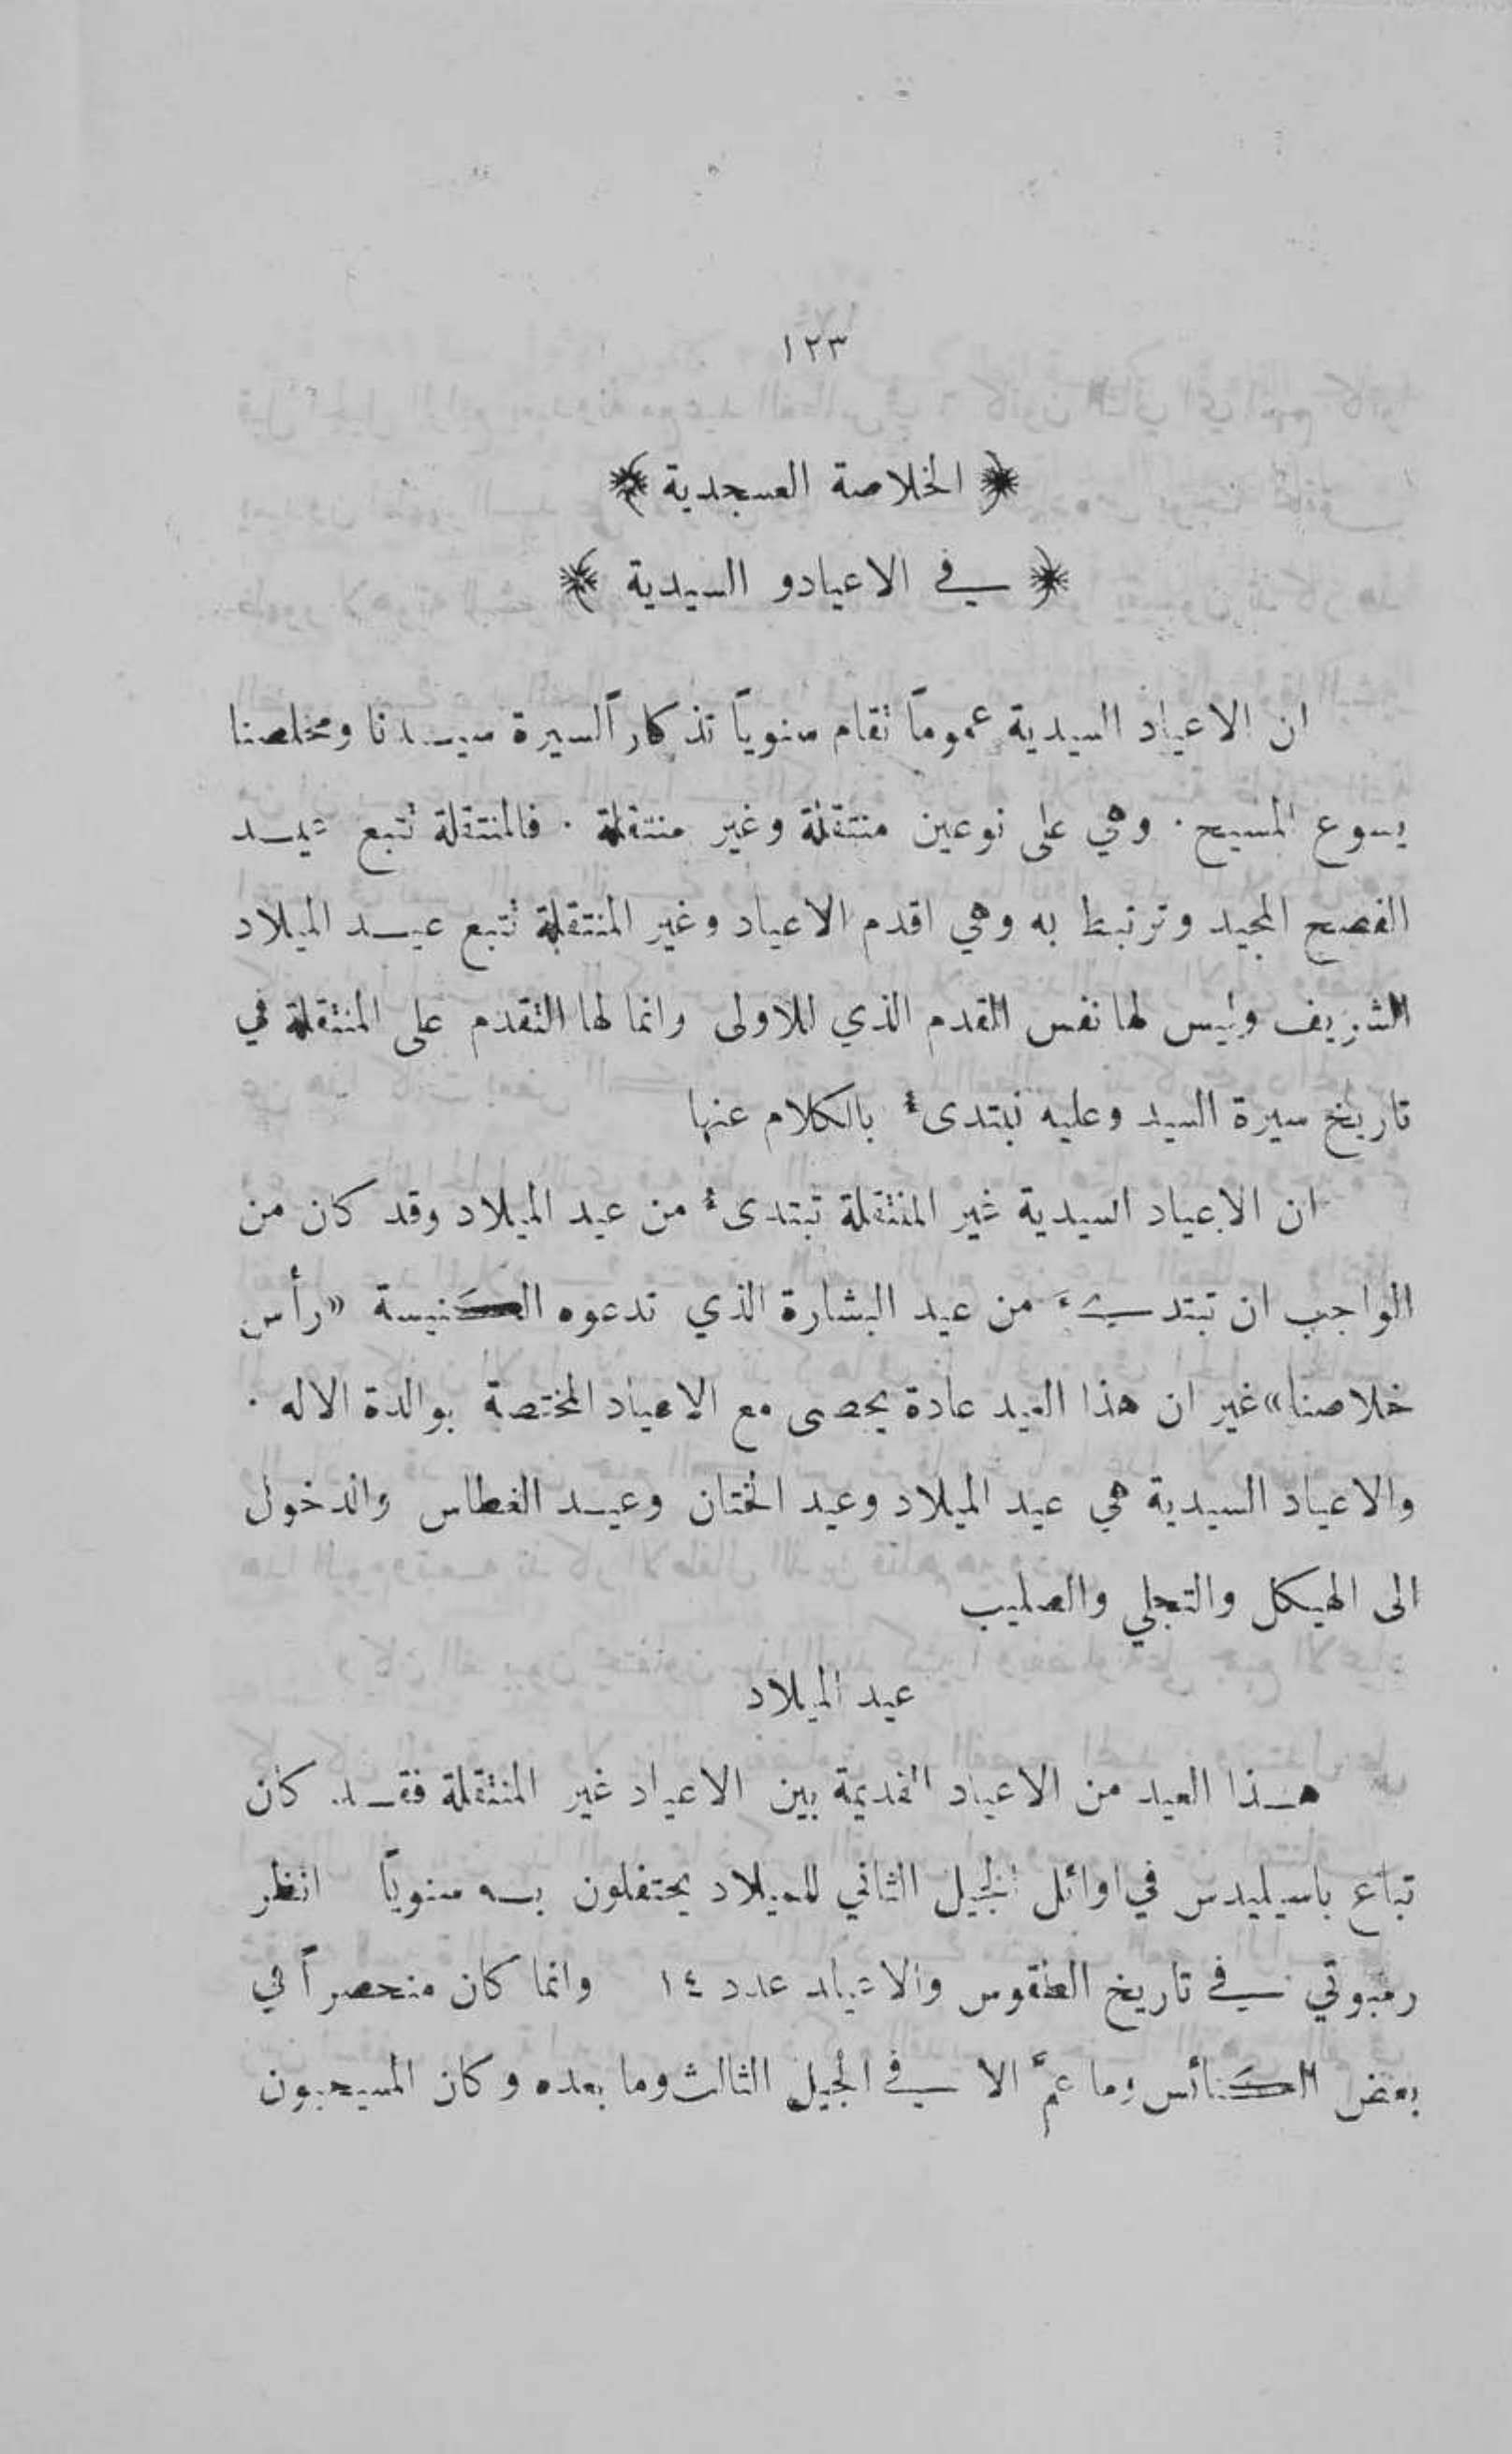 ١٢٣
﴿ الخلاصة العسجدية ﴾
﴿ في الاعيادو السيدية ﴾
ان الاعياد السيدية عموماً تقام سنوياً تذكاراً لسيرة سيدنا ومخلصنا
يسوع المسيح . وهي على نوعين منتقلة وغير منتقلة . فالمنتقلة تتبع عيد
الفصح المجيد وترتبط به وهي اقدم الاعياد وغير المنتقلة تتبع عيد الميلاد
الشريف وليس لها نفس القدم الذي للاولى وانما لها التقدم على المنتقلة في
تاريخ سيرة السيد وعليه نبتدىء بالكلام عنها
ان الاعياد السيدية غير المنتقلة تبتدىء من عيد الميلاد وقد كان من
الواجب ان تبتديءَ من عيد البشارة الذي تدعوه الكنيسة «رأس
خلاصنا» غير ان هذا العيد عادة يحصى مع الاعياد المختصة بوالدة الاله .
والاعياد السيدية هي عيد الميلاد وعيد الختان وعيد الغطاس والدخول
الى الهيكل والتجلي والصليب
عيد الميلاد
هذا العيد من الاعياد القديمة بين الاعياد غير المنتقلة فقد كان
تباع باسيليدس في اوائل الجيل الثاني للميلاد يحتفلون به سنوياً انظر
رمبوتي في تاريخ الطقوس والاعياد عدد ١٤ وانما كان منحصراً في
بعض الكنائس وما عمَّ الا في الجيل الثالث وما بعده وكان المسيحيون